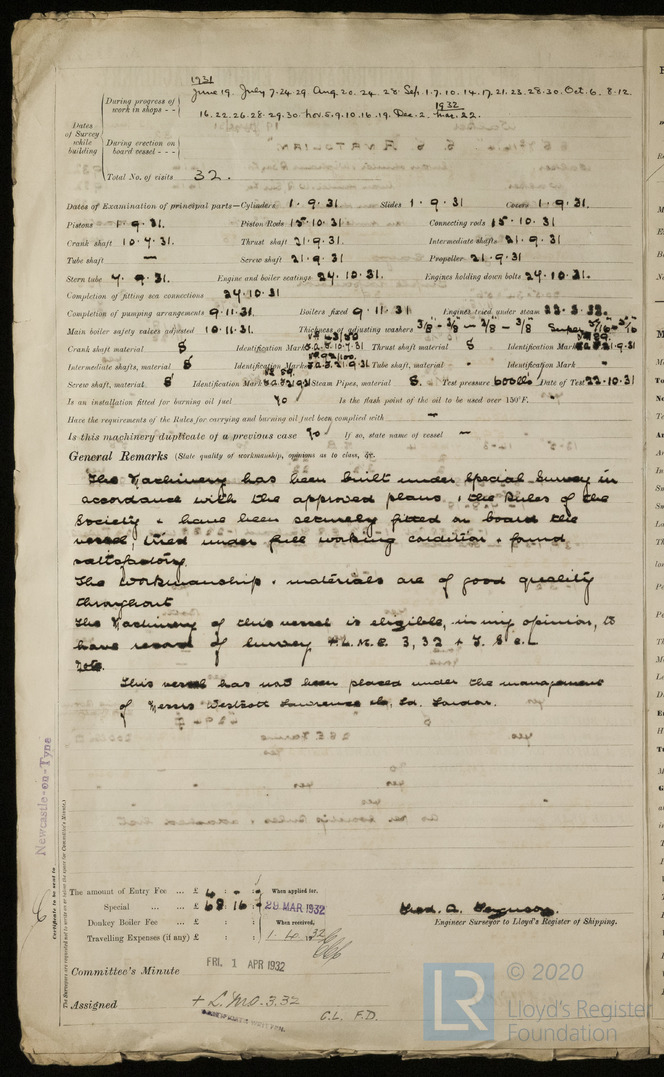 1931
During progress of work in shops - - June 19. July 7. 24. 29. Aug 20. 24. 28 Sep. 1. 7. 10. 14. 17. 21. 23. 28. 30. Oct. 6. 8. 12.
1932
16. 22. 26. 28. 29. 30. Nov. 5. 9. 10. 16. 19. Dec. 2. Mar. 22.
Dates of Survey while building
During erection on board vessel - - -
Total No. of visits 32.
Dates of Examination of principal parts—Cylinders 1. 9. 31 Slides 1. 9. 31 Covers 1. 9. 31.
Pistons 1. 9. 31. Piston Rods 15. 10. 31 Connecting rods 15. 10. 31
Crank shaft 10. 7. 31. Thrust shaft 21. 9. 31 Intermediate shafts 21. 9. 31
Tube shaft — Screw shaft 21. 9. 31 Propeller 21. 9. 31
Stern tube 7. 9. 31. Engine and boiler seatings 24. 10. 31. Engines holding down bolts 24. 10. 31.
Completion of fitting sea connections 24. 10. 31
Completion of pumping arrangements 9. 11. 31. Boilers fixed 9. 11. 31 Engines tried under steam 22. 3. 32.
Main boiler safety valves adjusted 10. 11. 31. Thickness of adjusting washers 3/8 - 3/8 - 3/8 - 3/8 Super 5/16 - 5/16
Crank shaft material S Identification Mark Thrust shaft material S Identification Mark
Intermediate shafts, material S Identification Marks Tube shaft, material - Identification Mark -
Screw shaft, material S Identification Mark Steam Pipes, material S. Test pressure 600 lbs Date of Test 22. 10. 31
Is an installation fitted for burning oil fuel No Is the flash point of the oil to be used over 150°F. -
Have the requirements of the Rules for carrying and burning oil fuel been complied with —
Is this machinery duplicate of a previous case No If so, state name of vessel —
General Remarks (State quality of workmanship, opinions as to class, &c.
The Machinery has been built under Special Survey in
accordance with the approved plans, & the Rules of the
Society & have been securely fitted on board the
vessel, tried under full working condition & found
satisfactory.
The workmanship & materials are of good quality
throughout
The Machinery of this vessel is eligible, in my opinion, to
have record of Survey + L.M.C. 3, 32 & T. S & L
Note.
This vessel has not been placed under the management
of Messrs Westcott Lawrence Ld. London.
Newcastle-on-Tyne
Certificate to be sent to
The amount of Entry Fee ... £ 4 : - : - When applied for,
Special ... ... £ 68 : 16 : - 29 MAR 1932
Donkey Boiler Fee ... £ : : When received,
Travelling Expenses (if any) £ : : 1. 4. 1932
Engineer Surveyor to Lloyd's Register of Shipping.
Committee's Minute FRI. 1 APR 1932
Assigned + L.M.C. 3.32
C.L. F.D.
LR
© 2020
Lloyd's Register
Foundation